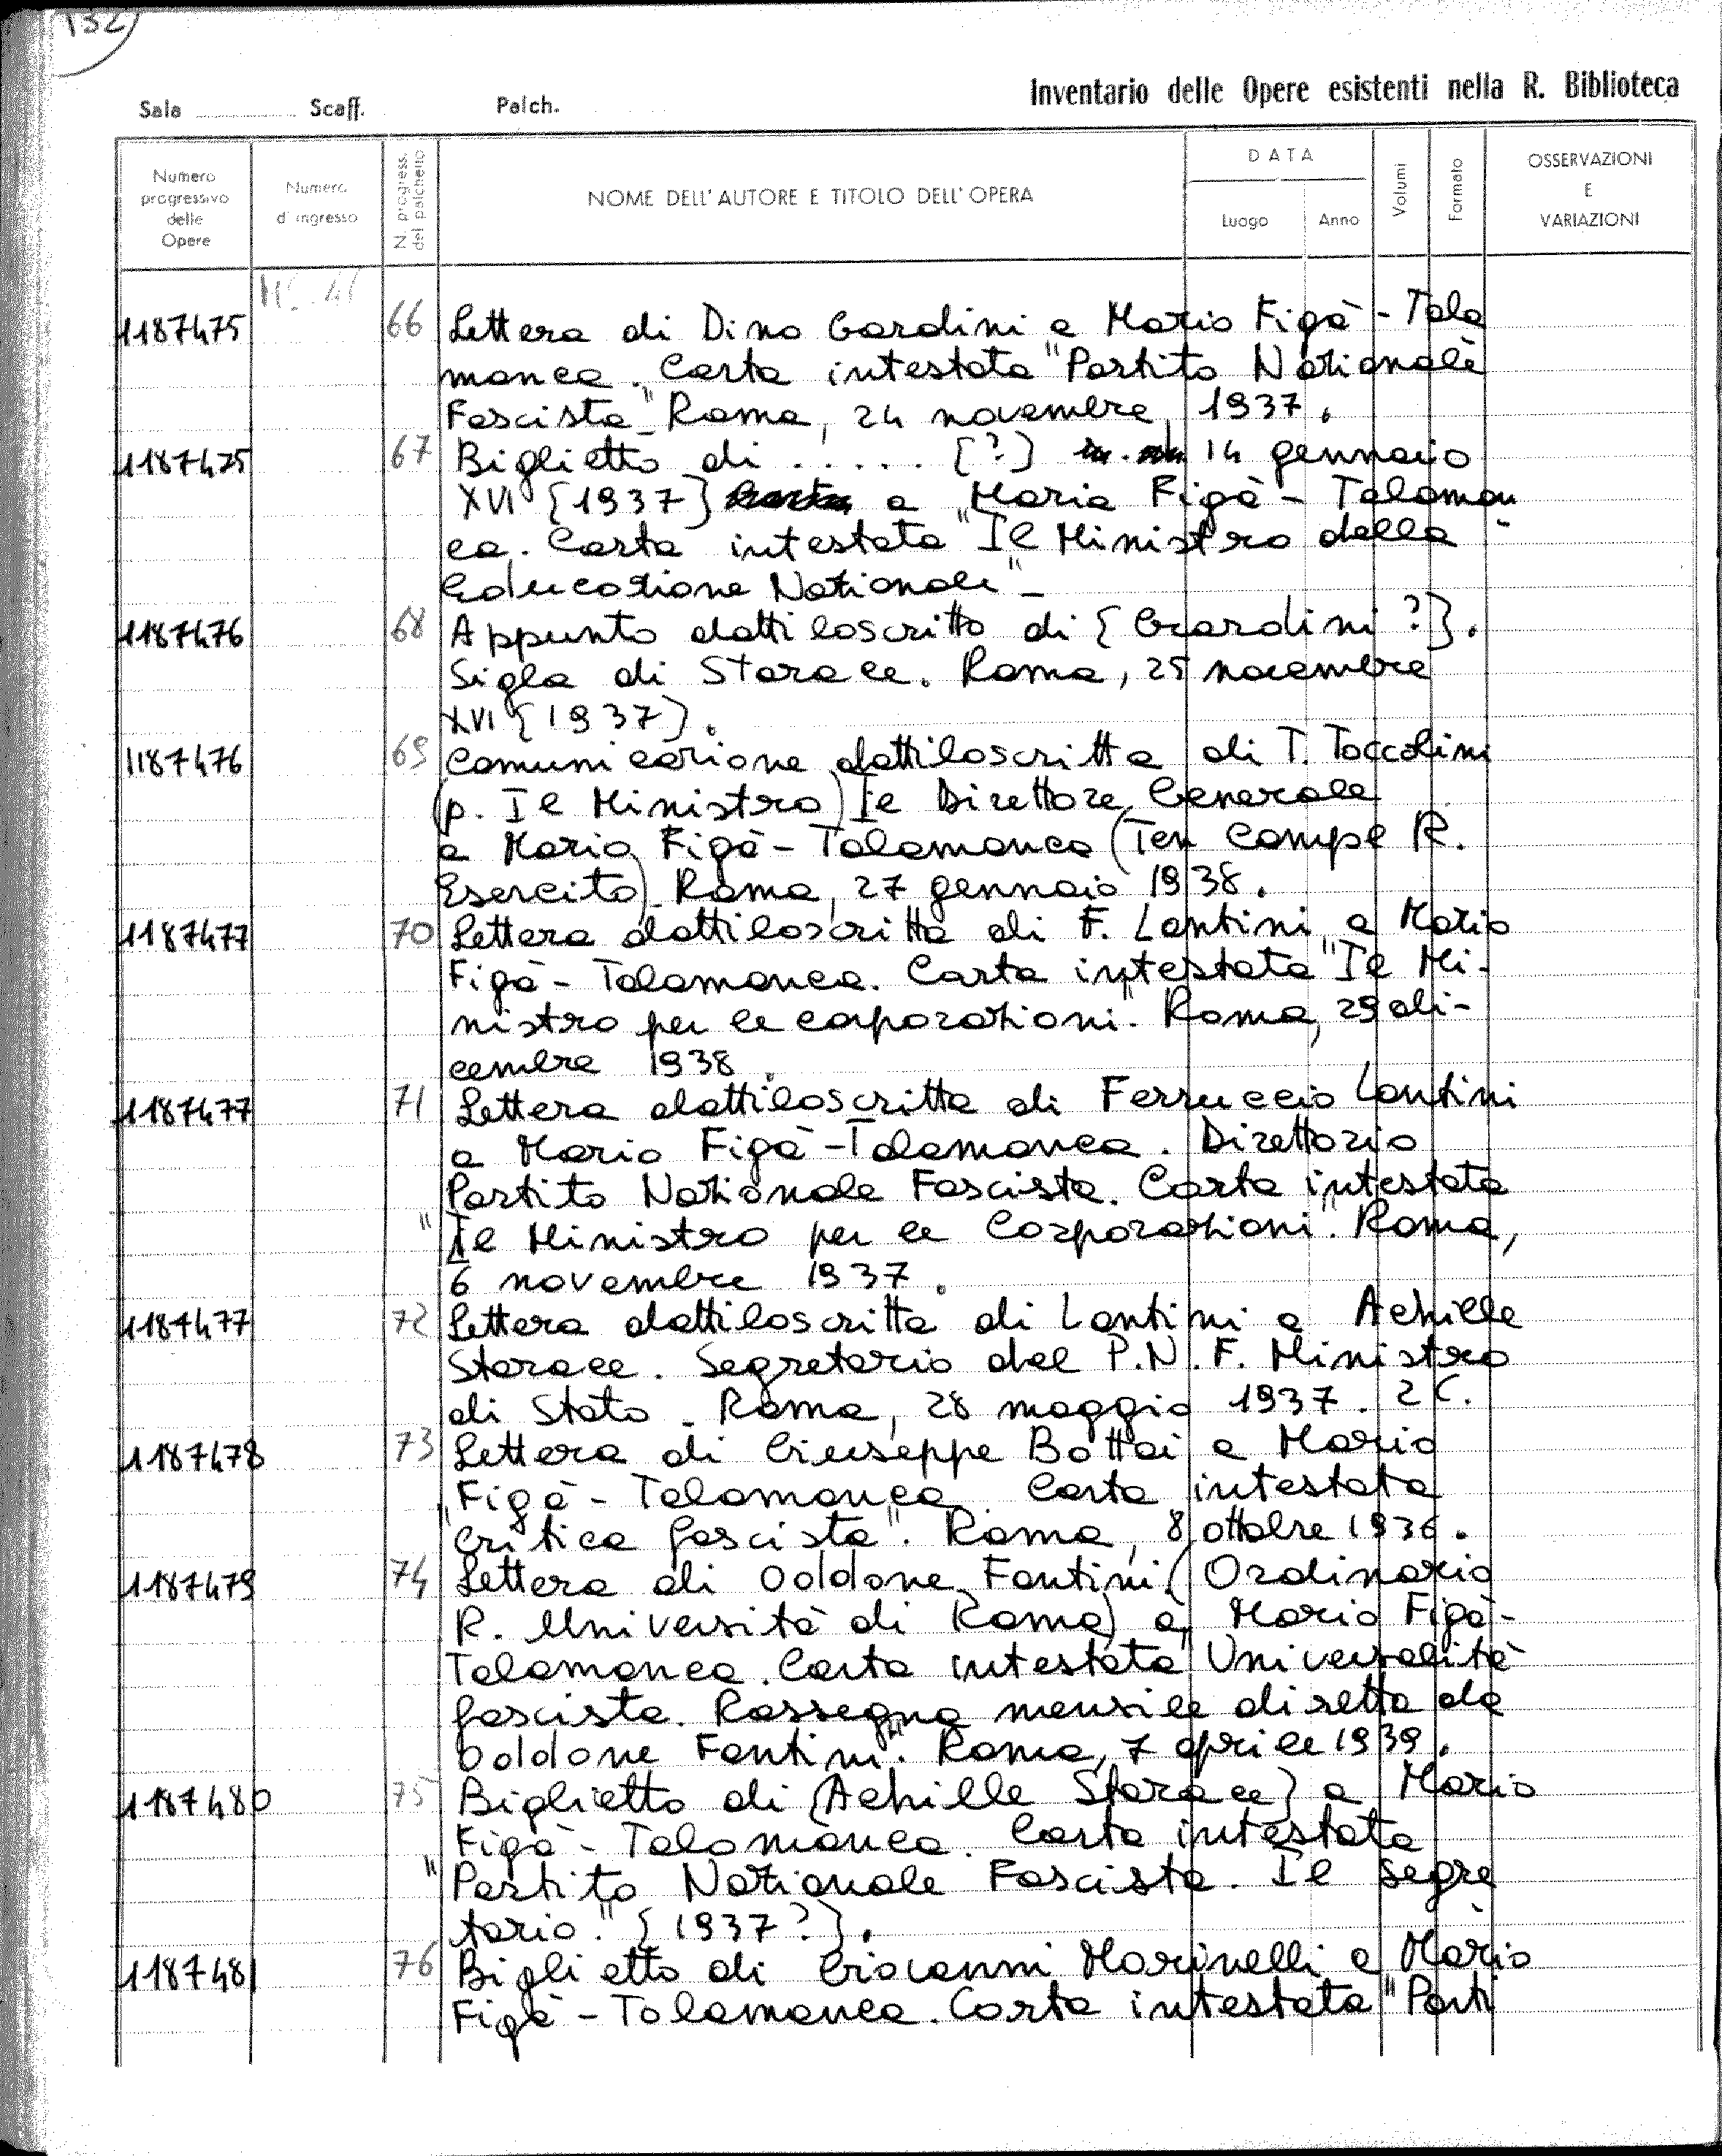 132
Inventario delle Opere esistenti nella R. Biblioteca
Sala Scaff. Palch.
Numero progressivo delle Opere
Numero d'ingresso
N. progress. del palchetto
NOME DELL'AUTORE E TITOLO DELL'OPERA
DATA
Luogo
Anno
Volumi
Formato
OSSERVAZIONI E VARIAZIONI
1187475 66 Lettera di Dino Gardini a Mario Figà-Tala
manca. Carta intestata "Partito Nazionale
Fascista" Roma, 24 novembre 1937.
1187475 67 Biglietto di ..... [?] 14 gennaio
XVI [1937] a Maria Figà-Talaman
ca. Carta intestata "Il Ministro della
Educazione Nazionale"-
1187476 68 Appunto dattiloscritto di [Gardini?].
Sigla di Starace. Roma, 25 novembre
XVI [1937].
1187476 69 Comunicazione dattiloscritta di T. Toccolini
(p. Il Ministro) Il Direttore Generale
a Mario Figà-Talamanca (Ten Compl R.
Esercito) Roma, 27 gennaio 1938.
1187477 70 Lettera dattiloscritta di F. Lantini a Mario
Figà-Talamanca. Carta intestata "Il Mi-
nistro per le corporazioni". Roma, 29 di-
cembre 1938.
1187477 71 Lettera dattiloscritta di Ferruccio Lantini
a Mario Figà-Talamanca. Direttorio
Partito Nazionale Fascista. Carta intestata
"Il Ministro per le Corporazioni". Roma,
6 novembre 1937.
1187477 72 Lettera dattiloscritta di Lantini a Achille
Starace. Segretario del P.N.F. Ministro
di Stato. Roma, 28 maggio 1937. 2 C.
1187478 73 Lettera di Giuseppe Bottai a Mario
Figà-Talamanca. Carta intestata
"Critica fascista". Roma, 8 ottobre 1936.
1187479 74 Lettera di Oddone Fantini (Ordinario
R. Università di Roma) a Mario Figà-
Talamanca. Carta intestata "Universalità
fascista. Rassegna mensile diretta da
Oddone Fantini". Roma, 7 aprile 1939.
1187480 75 Biglietto di [Achille Starace] a Mario
Figà-Talamanca. Carta intestata
"Partito Nazionale Fascista. Il segre
tario." [1937?].
1187481 76 Biglietto di Giovanni Marinelli a Mario
Figà-Talamanca. Carta intestata "Parti